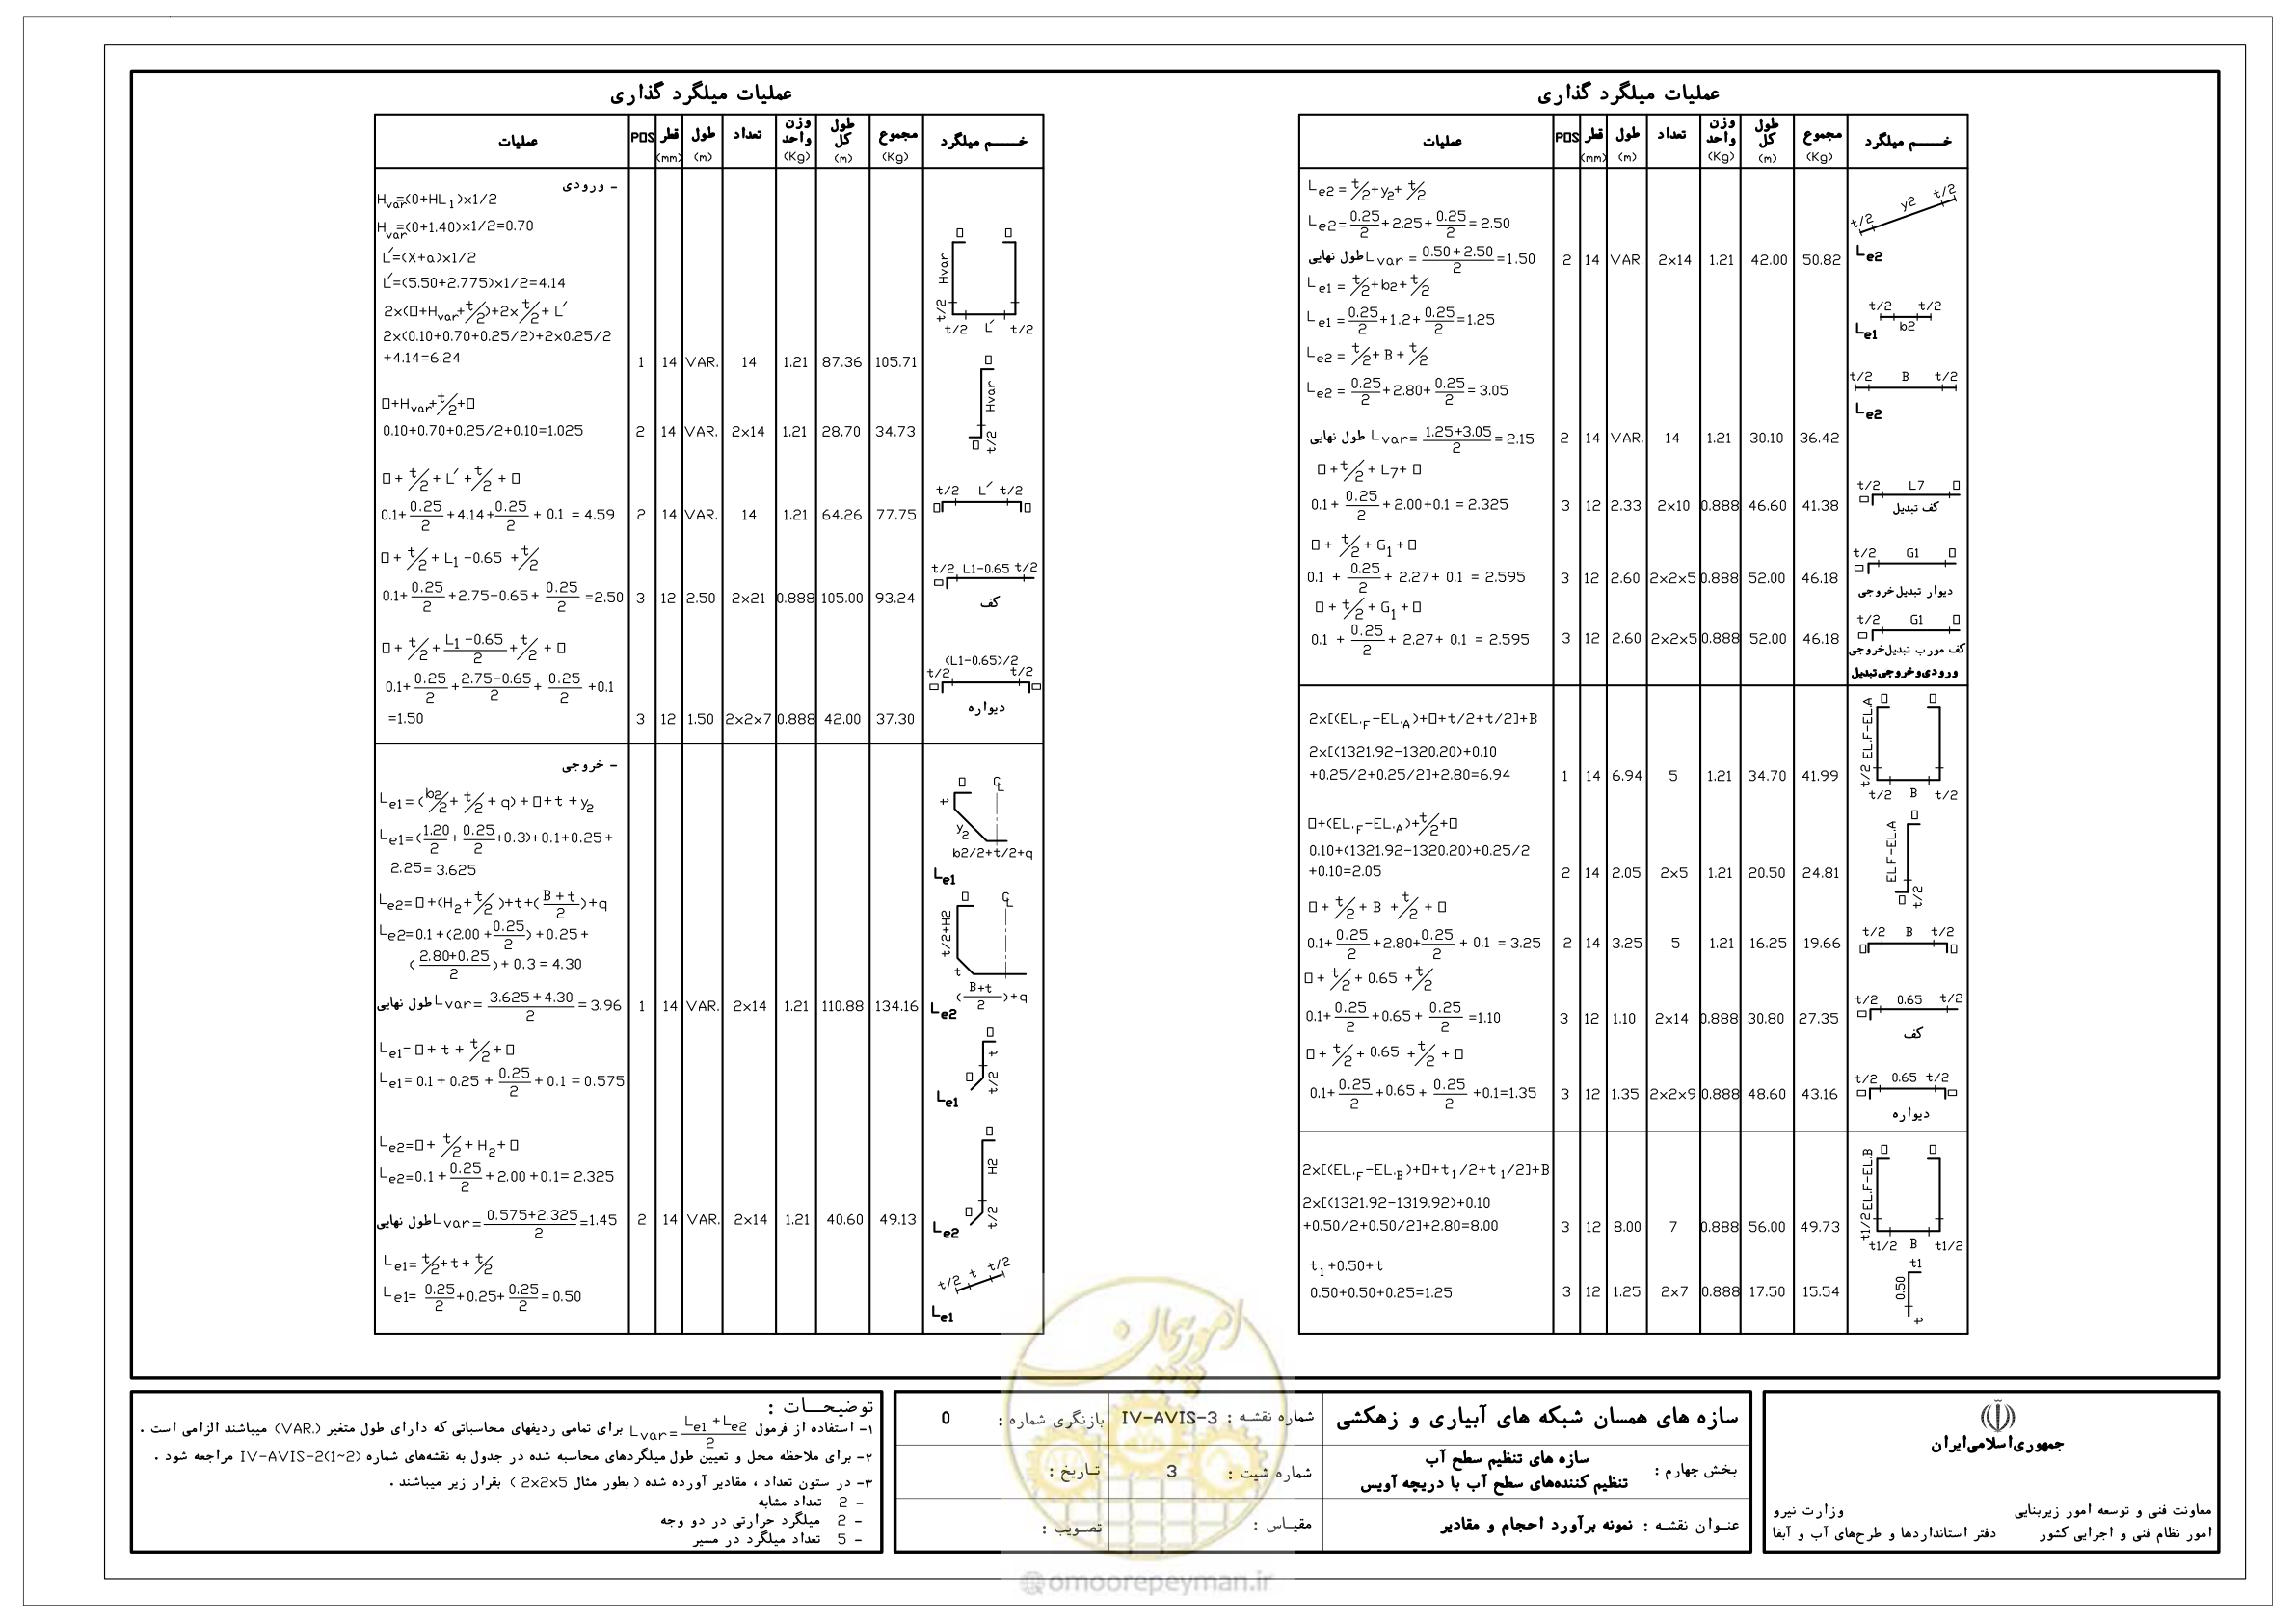 عملیات میلگرد گذاری
عملیات POS قطر (mm) طول (m) تعداد وزن واحد (Kg) طول کل (m) مجموع (Kg) خـــم میلگرد
- ورودی
Hvar=(0+HL1)x1/2
Hvar=(0+1.40)x1/2=0.70
L′=(X+a)x1/2
L′=(5.50+2.775)x1/2=4.14
2x(□+Hvar+t/2)+2xt/2+L′
2x(0.10+0.70+0.25/2)+2x0.25/2
+4.14=6.24 1 14 VAR. 14 1.21 87.36 105.71
□ □ Hvar t/2 t/2 L′ t/2
□+Hvar+t/2+□
0.10+0.70+0.25/2+0.10=1.025 2 14 VAR. 2x14 1.21 28.70 34.73
□ Hvar □ t/2
□+t/2+L′+t/2+□
0.1+0.25/2+4.14+0.25/2+0.1=4.59 2 14 VAR. 14 1.21 64.26 77.75
t/2 L′ t/2 □ □
□+t/2+L1-0.65+t/2
0.1+0.25/2+2.75-0.65+0.25/2=2.50 3 12 2.50 2x21 0.888 105.00 93.24
t/2 L1-0.65 t/2 □
کف
□+t/2+(L1-0.65)/2+t/2+□
0.1+0.25/2+(2.75-0.65)/2+0.25/2+0.1
=1.50 3 12 1.50 2x2x7 0.888 42.00 37.30
(L1-0.65)/2
t/2 t/2 □ □
دیواره
- خروجی
Le1=(b2/2+t/2+q)+□+t+y2
Le1=(1.20/2+0.25/2+0.3)+0.1+0.25+
2.25=3.625
□ ℄ t y2
b2/2+t/2+q
Le1
Le2=□+(H2+t/2)+t+((B+t)/2)+q
Le2=0.1+(2.00+0.25/2)+0.25+
((2.80+0.25)/2)+0.3=4.30
□ ℄ t/2+H2 t
((B+t)/2)+q
Le2
طول نهایی Lvar=(3.625+4.30)/2=3.96 1 14 VAR. 2x14 1.21 110.88 134.16
Le1=□+t+t/2+□
Le1=0.1+0.25+0.25/2+0.1=0.575
□ t □ t/2
Le1
Le2=□+t/2+H2+□
Le2=0.1+0.25/2+2.00+0.1=2.325
□ H2 □ t/2
Le2
طول نهایی Lvar=(0.575+2.325)/2=1.45 2 14 VAR. 2x14 1.21 40.60 49.13
Le1=t/2+t+t/2
Le1=0.25/2+0.25+0.25/2=0.50
t/2 t t/2
Le1
عملیات میلگرد گذاری
عملیات POS قطر (mm) طول (m) تعداد وزن واحد (Kg) طول کل (m) مجموع (Kg) خـــم میلگرد
Le2=t/2+y2+t/2
Le2=0.25/2+2.25+0.25/2=2.50
t/2 y2 t/2
Le2
طول نهایی Lvar=(0.50+2.50)/2=1.50 2 14 VAR. 2x14 1.21 42.00 50.82
Le1=t/2+b2+t/2
Le1=0.25/2+1.2+0.25/2=1.25
t/2 t/2 b2
Le1
Le2=t/2+B+t/2
Le2=0.25/2+2.80+0.25/2=3.05
t/2 B t/2
Le2
طول نهایی Lvar=(1.25+3.05)/2=2.15 2 14 VAR. 14 1.21 30.10 36.42
□+t/2+L7+□
0.1+0.25/2+2.00+0.1=2.325 3 12 2.33 2x10 0.888 46.60 41.38
t/2 L7 □ □
کف تبدیل
□+t/2+G1+□
0.1+0.25/2+2.27+0.1=2.595 3 12 2.60 2x2x5 0.888 52.00 46.18
t/2 G1 □ □
دیوار تبدیل خروجی
□+t/2+G1+□
0.1+0.25/2+2.27+0.1=2.595 3 12 2.60 2x2x5 0.888 52.00 46.18
t/2 G1 □ □
کف مورب تبدیل خروجی
ورودی و خروجی تبدیل
2x[(EL.F-EL.A)+□+t/2+t/2]+B
2x[(1321.92-1320.20)+0.10
+0.25/2+0.25/2]+2.80=6.94 1 14 6.94 5 1.21 34.70 41.99
□ □ t/2 EL.F-EL.A t/2 B t/2
□+(EL.F-EL.A)+t/2+□
0.10+(1321.92-1320.20)+0.25/2
+0.10=2.05 2 14 2.05 2x5 1.21 20.50 24.81
□ EL.F-EL.A □ t/2
□+t/2+B+t/2+□
0.1+0.25/2+2.80+0.25/2+0.1=3.25 2 14 3.25 5 1.21 16.25 19.66
t/2 B t/2 □ □
□+t/2+0.65+t/2
0.1+0.25/2+0.65+0.25/2=1.10 3 12 1.10 2x14 0.888 30.80 27.35
t/2 0.65 t/2 □
کف
□+t/2+0.65+t/2+□
0.1+0.25/2+0.65+0.25/2+0.1=1.35 3 12 1.35 2x2x9 0.888 48.60 43.16
t/2 0.65 t/2 □ □
دیواره
2x[(EL.F-EL.B)+□+t1/2+t1/2]+B
2x[(1321.92-1319.92)+0.10
+0.50/2+0.50/2]+2.80=8.00 3 12 8.00 7 0.888 56.00 49.73
□ □ t1/2 EL.F-EL.B t1/2 B t1/2
t1+0.50+t
0.50+0.50+0.25=1.25 3 12 1.25 2x7 0.888 17.50 15.54
t1 0.50 t
توضیحـــات :
۱- استفاده از فرمول Lvar=(Le1+Le2)/2 برای تمامی ردیفهای محاسباتی که دارای طول متغیر (VAR.) میباشند الزامی است .
۲- برای ملاحظه محل و تعیین طول میلگردهای محاسبه شده در جدول به نقشه‌های شماره IV-AVIS-2(1~2) مراجعه شود .
۳- در ستون تعداد ، مقادیر آورده شده ( بطور مثال 2x2x5 ) بقرار زیر میباشند .
- 2 تعداد مشابه
- 2 میلگرد حرارتی در دو وجه
- 5 تعداد میلگرد در مسیر
سازه های همسان شبکه های آبیاری و زهکشی
شماره نقشه : IV-AVIS-3
بازنگری شماره : 0
بخش چهارم : سازه های تنظیم سطح آب
تنظیم کننده‌های سطح آب با دریچه آویس
شماره شیت : 3
تاریخ :
عنـوان نقشـه : نمونه برآورد احجام و مقادیر
مقیـاس :
تصـویب :
جمهوری‌اسلامی‌ایران
معاونت فنی و توسعه امور زیربنایی
امور نظام فنی و اجرایی کشور
وزارت نیرو
دفتر استانداردها و طرح‌های آب و آبفا
امور پیمان
@omoorepeyman.ir